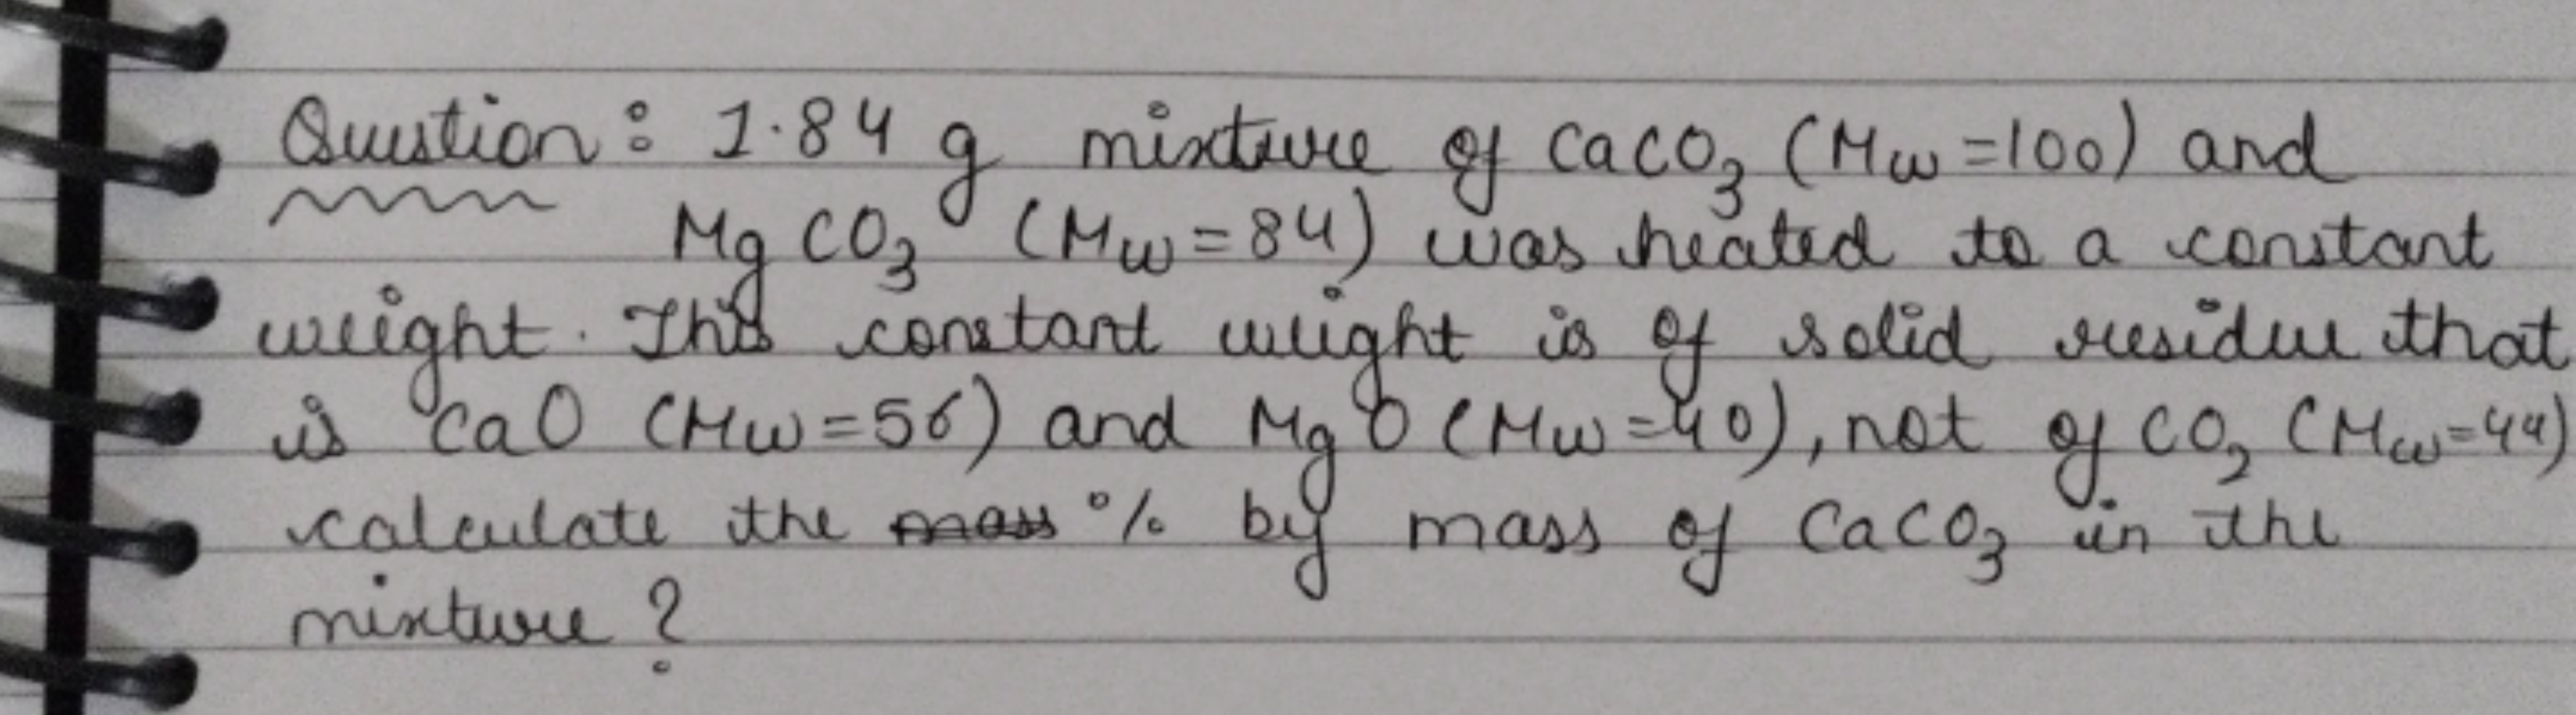 Question : 1.84 g mixture of CaCO3 (Mw=100) and
MgCO3 (Mw=84) was heated to a constant
weight. This constant weight is of solid residue that
is CaO (Mw=56) and MgO (Mw=40), not of CO2 (Mw=44)
calculate the mass % by mass of CaCO3 in the
mixture ?